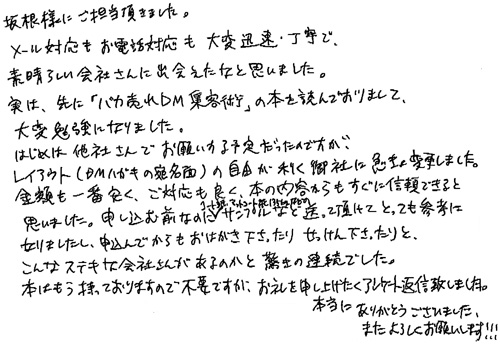 坂根様にご担当頂きました。
メール対応もお電話対応も大変迅速・丁寧で、
素晴らしい会社さんに出会えたなと思いました。
実は、先に「バカ売れDM集客術」の本を読んでおりまして、
大変勉強になりました。
はじめは他社さんでお願いする予定だったのですが、
レイアウト（DMハガキの宛名面）の自由が利く御社に急きょ変更しました。
金額も一番安く、ご対応も良く、本の内容からもすぐに信頼できると
思いました。申し込む前なのにサンプルなど送って頂けてとっても参考に
なりましたし、申込んでからもおはがき下さったりせっけん下さったりと、
こんなステキな会社さんがあるのかと驚きの連続でした。
本はもう持っておりますので不要ですが、お礼を申し上げたくアンケート返信致しました。
本当にありがとうございました。
またよろしくお願いします!!!